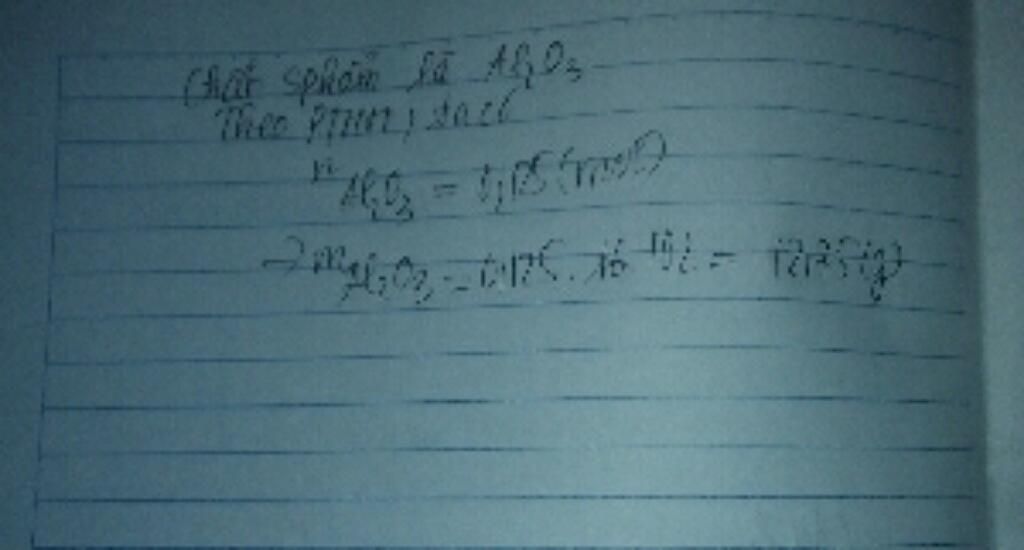 Chất sphẩm là Al2O3
Theo PTHH, ta có
n Al2O3 = (mol)
→ m Al2O3 = = 12,75 (g)